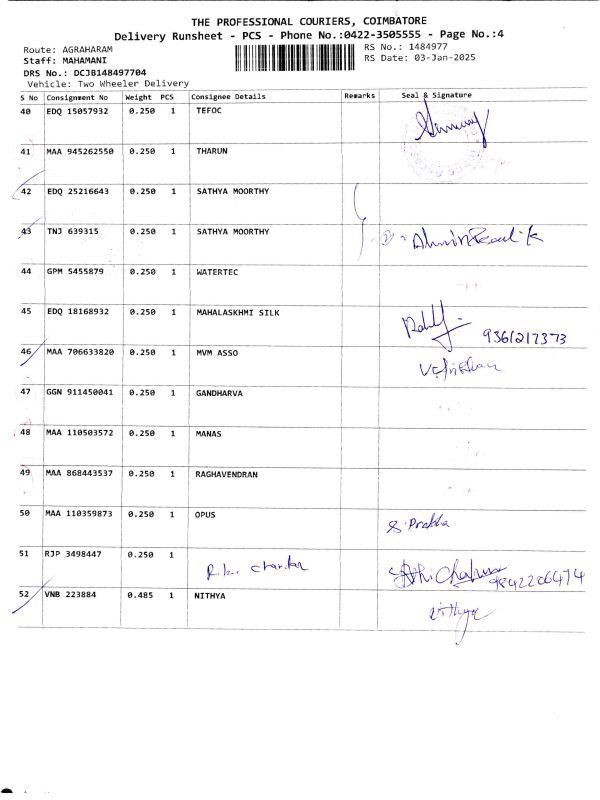 THE PROFESSIONAL COURIERS, COIMBATORE
Delivery Runsheet - PCS - Phone No.:0422-3505555 - Page No.:4
Route: AGRAHARAM RS No.: 1484977
Staff: MAHAMANI RS Date: 03-Jan-2025
DRS No.: DCJB148497704
Vehicle: Two Wheeler Delivery
S No Consignment No Weight PCS Consignee Details Remarks Seal & Signature
40 EDQ 15057932 0.250 1 TEFOC
41 MAA 945262550 0.250 1 THARUN
42 EDQ 25216643 0.250 1 SATHYA MOORTHY
43 TNJ 639315 0.250 1 SATHYA MOORTHY
44 GPM 5455879 0.250 1 WATERTEC
45 EDQ 18168932 0.250 1 MAHALASKHMI SILK 9361217373
46 MAA 706633820 0.250 1 MVM ASSO
47 GGN 911450041 0.250 1 GANDHARVA
48 MAA 110503572 0.250 1 MANAS
49 MAA 868443537 0.250 1 RAGHAVENDRAN
50 MAA 110359873 0.250 1 OPUS S. Prabha
51 RJP 3498447 0.250 1 9842206474
52 VNB 223884 0.485 1 NITHYA